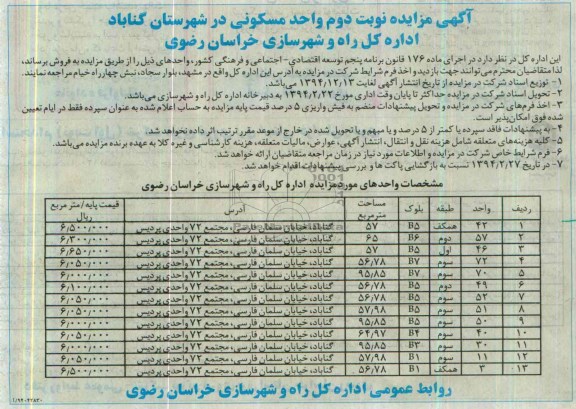 آگهی مزایده نوبت دوم واحد مسکونی در شهرستان گناباد
اداره کل راه و شهرسازی خراسان رضوی
این اداره کل در نظر دارد در اجرای ماده ۱۷۶ قانون برنامه پنجم توسعه اقتصادی- اجتماعی و فرهنگی کشور، واحدهای ذیل را از طریق مزایده به فروش برساند،
لذا متقاضیان محترم می‌توانند جهت بازدید و اخذ فرم شرایط شرکت در مزایده به آدرس این اداره کل واقع در مشهد، بلوار سجاد، نبش چهارراه خیام مراجعه نمایند.
۱- توزیع اسناد شرکت در مزایده از تاریخ انتشار آگهی لغایت ۱۳۹۴/۲/۱۳ می‌باشد.
۲- تحویل اسناد شرکت در مزایده حداکثر تا پایان وقت اداری مورخ ۱۳۹۴/۲/۲۲ به دبیرخانه اداره کل راه و شهرسازی می‌باشد.
۳- اخذ فرم‌های شرکت در مزایده و تحویل پیشنهادات منضم به فیش واریزی ۵ درصد قیمت پایه مزایده به حساب اعلام شده به عنوان سپرده فقط در ایام تعیین
شده فوق امکان‌پذیر است.
۴- به پیشنهادات فاقد سپرده یا کمتر از ۵ درصد و یا مبهم و یا تحویل شده در خارج از موعد مقرر ترتیب اثر داده نخواهد شد.
۵- کلیه هزینه‌های متعلقه شامل هزینه نقل و انتقال، انتشار آگهی، عوارض، مالیات متعلقه، هزینه کارشناسی و غیره کلا به عهده برنده مزایده می‌باشد.
۶- فرم شرایط خاص شرکت در مزایده و اطلاعات مورد نیاز در زمان مراجعه متقاضیان ارائه خواهد شد.
۷- در تاریخ ۱۳۹۴/۲/۲۷ نسبت به بازگشایی پاکت‌ها و بررسی پیشنهادات اقدام خواهد شد.
مشخصات واحدهای مورد مزایده اداره کل راه و شهرسازی خراسان رضوی
ردیف واحد طبقه بلوک مساحت مترمربع آدرس قیمت پایه/متر مربع ریال
۱ ۴۲ همکف B5 ۵۷ گناباد، خیابان سلمان فارسی، مجتمع ۷۲ واحدی پردیس ۶,۵۰۰,۰۰۰
۲ ۵۷ دوم B6 ۶۵ گناباد، خیابان سلمان فارسی، مجتمع ۷۲ واحدی پردیس ۶,۳۰۰,۰۰۰
۳ ۴۶ اول B5 ۵۷ گناباد، خیابان سلمان فارسی، مجتمع ۷۲ واحدی پردیس ۶,۶۵۰,۰۰۰
۴ ۷۲ سوم B7 ۵۶,۷۸ گناباد، خیابان سلمان فارسی، مجتمع ۷۲ واحدی پردیس ۶,۰۵۰,۰۰۰
۵ ۷۰ سوم B7 ۹۵,۸۵ گناباد، خیابان سلمان فارسی، مجتمع ۷۲ واحدی پردیس ۶,۰۰۰,۰۰۰
۶ ۴۹ دوم B5 ۵۶,۷۸ گناباد، خیابان سلمان فارسی، مجتمع ۷۲ واحدی پردیس ۶,۱۰۰,۰۰۰
۷ ۵۲ سوم B5 ۵۶,۷۸ گناباد، خیابان سلمان فارسی، مجتمع ۷۲ واحدی پردیس ۶,۰۵۰,۰۰۰
۸ ۵۱ سوم B5 ۵۷,۹۸ گناباد، خیابان سلمان فارسی، مجتمع ۷۲ واحدی پردیس ۶,۰۵۰,۰۰۰
۹ ۵۰ سوم B5 ۹۵,۸۵ گناباد، خیابان سلمان فارسی، مجتمع ۷۲ واحدی پردیس ۶,۰۰۰,۰۰۰
۱۰ ۴۰ سوم B4 ۶۴,۹۷ گناباد، خیابان سلمان فارسی، مجتمع ۷۲ واحدی پردیس ۶,۰۵۰,۰۰۰
۱۱ ۳۰ سوم B3 ۹۵,۸۵ گناباد، خیابان سلمان فارسی، مجتمع ۷۲ واحدی پردیس ۶,۰۰۰,۰۰۰
۱۲ ۱۱ سوم B1 ۵۷,۹۸ گناباد، خیابان سلمان فارسی، مجتمع ۷۲ واحدی پردیس ۶,۰۵۰,۰۰۰
۱۳ ۳ همکف B1 ۵۶,۷۸ گناباد، خیابان سلمان فارسی، مجتمع ۷۲ واحدی پردیس ۶,۵۰۰,۰۰۰
روابط عمومی اداره کل راه و شهرسازی خراسان رضوی